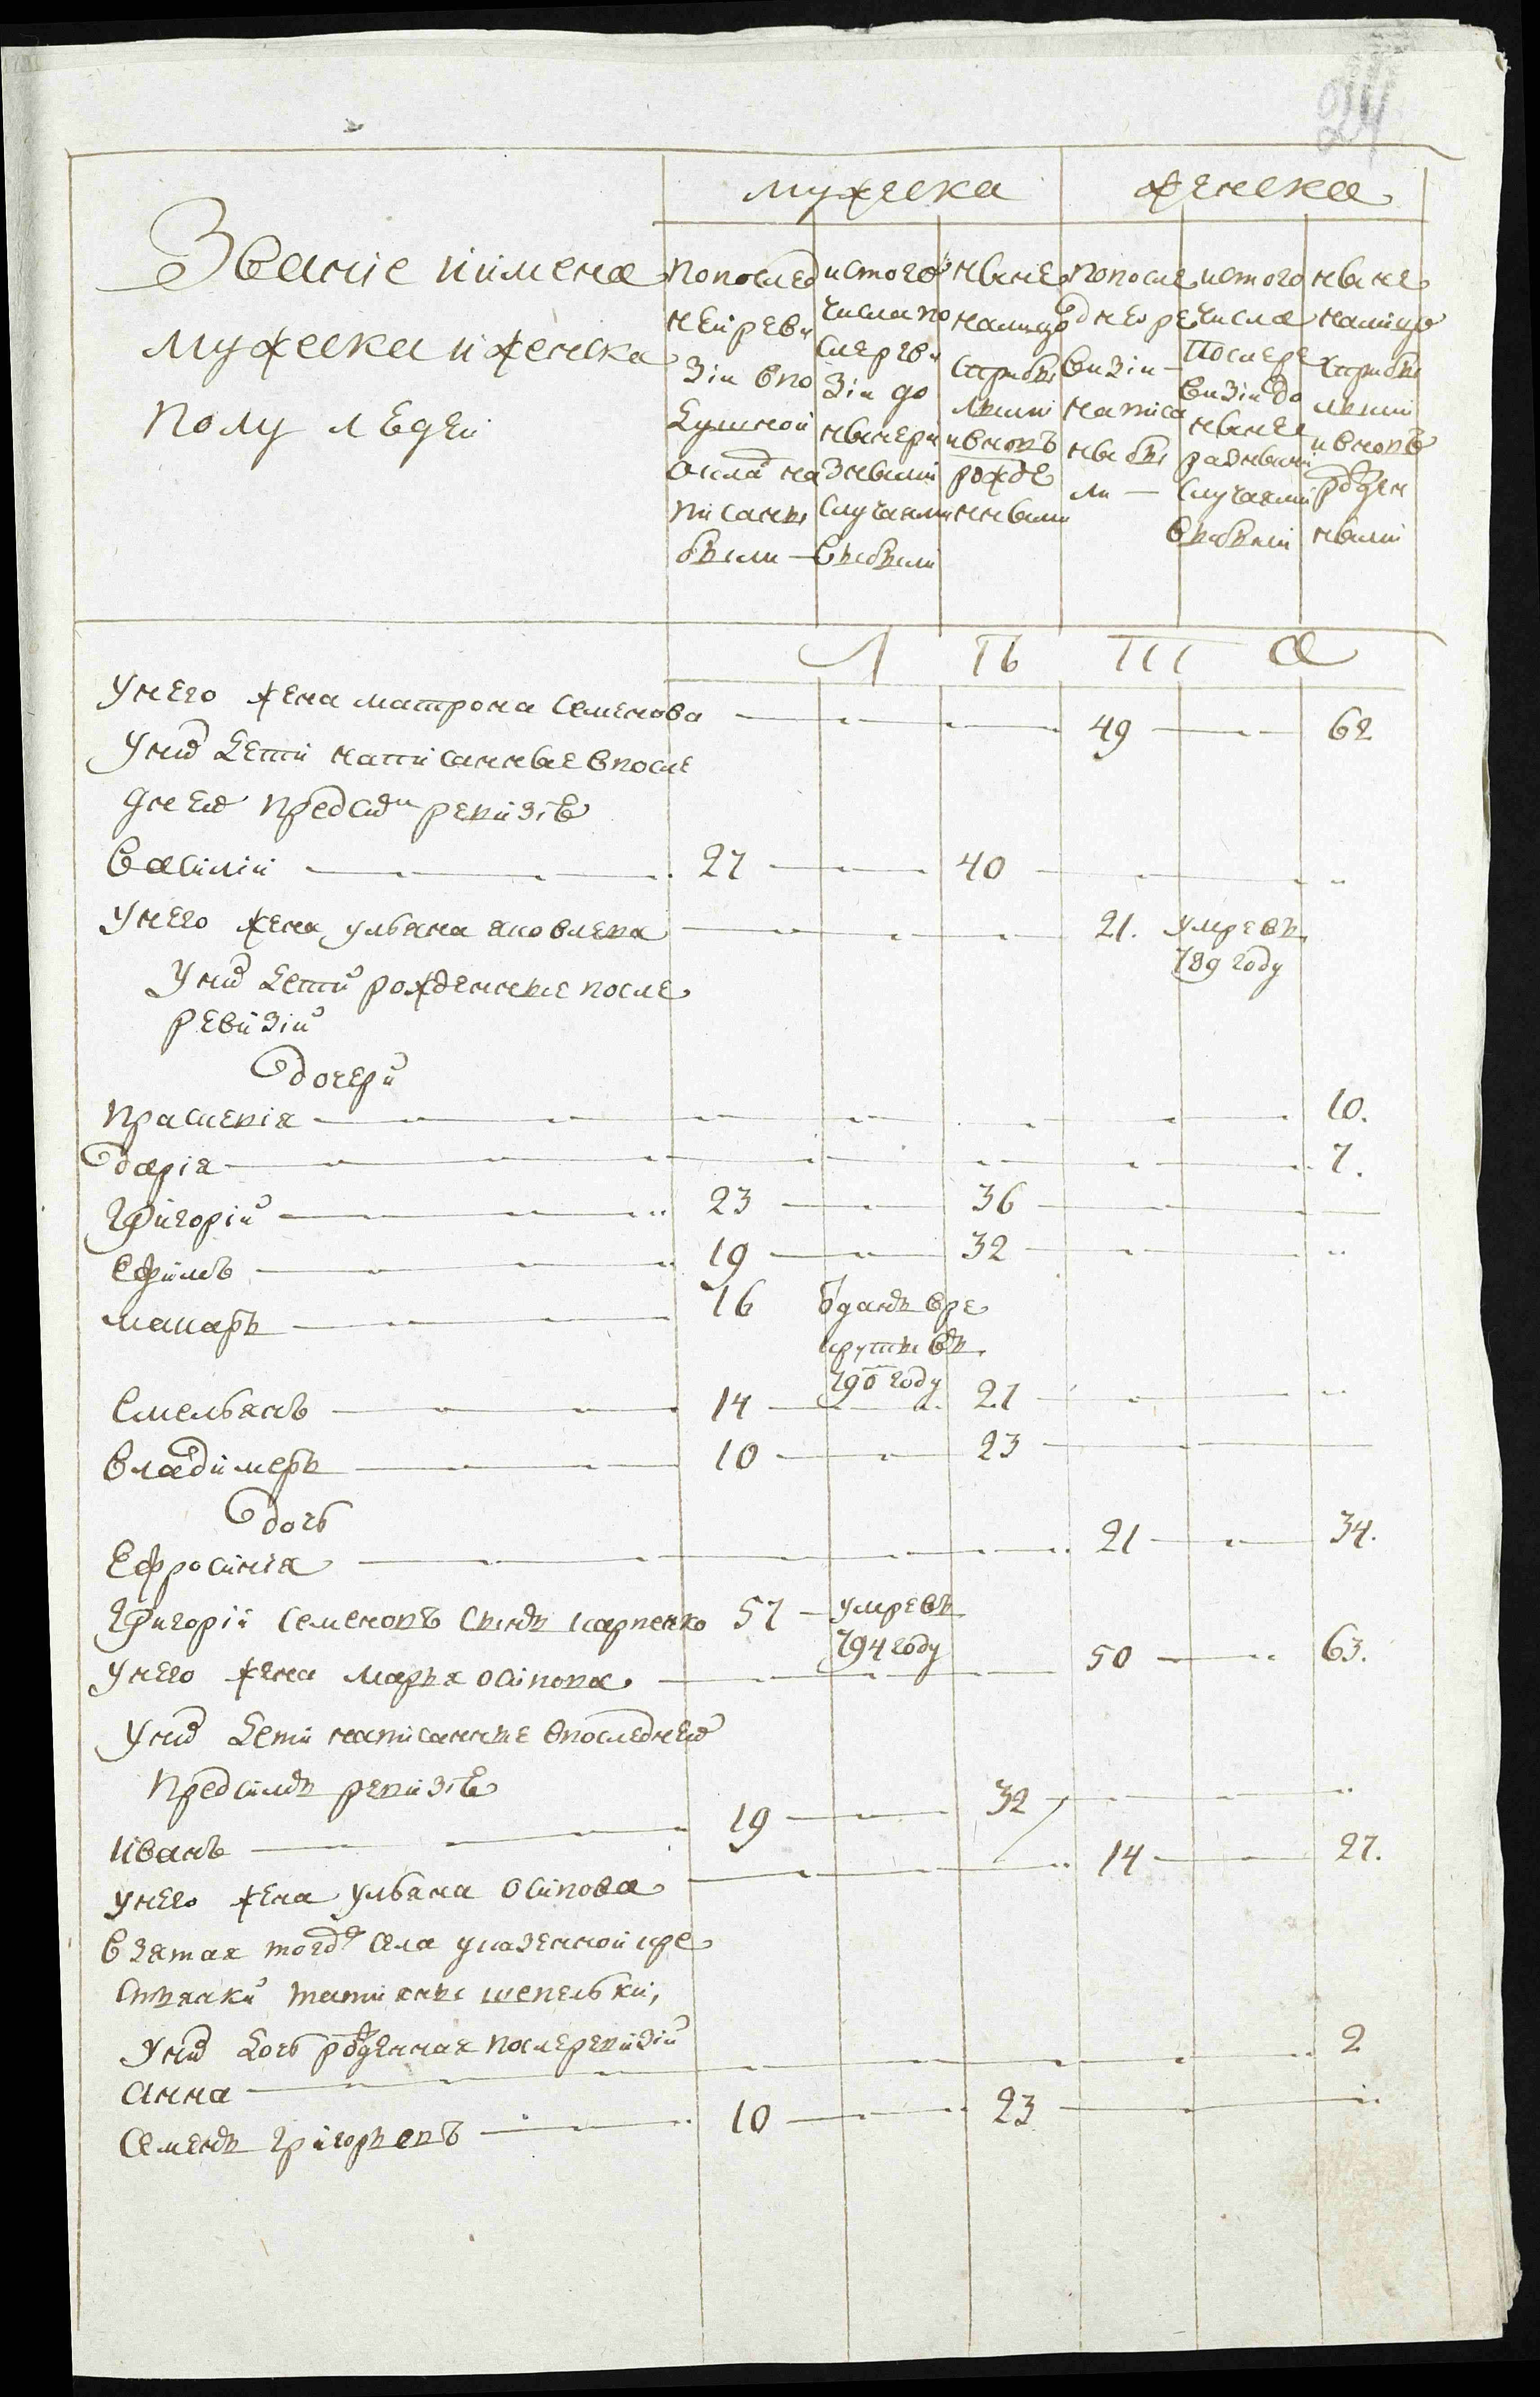 24
мужеска женска
Званіе и имена
мужеска и женска
полу людей
по послед
ней реви
зіи в по
душной
оклад на
писаны
были —
и с того
числа по
сле реви
зіи до
ныне ра
зными
случаями
выбыли
ныне
налицо
с прибы
лыми
и вновь
рожде
нными
по после
дней ре
визіи —
написа
ны бы
ли —
и с того
числа
после ре
визіи до
ныне
разными
случаями
выбыли
ныне
налицо
с прибы
лыми
и вновь
рожден
ными
Л ѣ т а
у него жена матрона семенова 49 62
у них дети написанные в после
дней пред сим ревизіе
василій 27 40
у него жена ульяна яковлева 21. умре въ
789 году
у них дети рожденные после
ревизіи
дочери
прасковія 10.
дарія 7.
григорій 23 36
ефимъ 19 32
макаръ 16 отданъ в ре
круты въ
790 году
емельянъ 14 27
владимеръ 10 23
дочь
ефросинія 21 34.
григорій семеновъ сынъ карпенко 57 умре въ
794 году
у него жена марья осипова 50 63.
у них дети написанные в последней
пред симъ ревизіе
иванъ 19 32
у него жена ульяна осипова 14 27.
взятая тогож села у казенной кре
стьянки татияны шепельки,
у них дочь рожденная после ревизіи
анна 2
семенъ григорьевъ 10 23